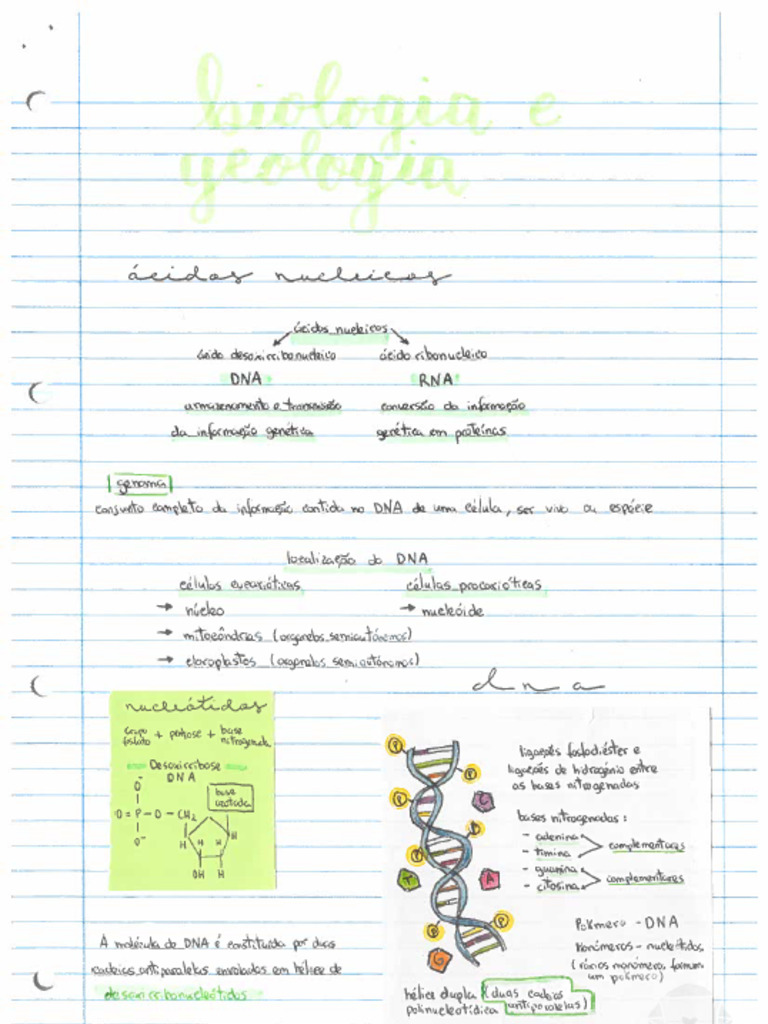 biologia e
geologia
ácidos nucleicos
ácidos nucleicos
ácido desoxirribonucleico ácido ribonucleico
DNA RNA
armazenamento e transmissão conversão da informação
da informação genética genética em proteínas
genoma
conjunto completo da informação contida no DNA de uma célula, ser vivo ou espécie
localização do DNA
células eucarióticas células procarióticas
→ núcleo → nucleóide
→ mitocôndrias (organelos semiautónomos)
→ cloroplastos (organelos semiautónomos)
dna
nucleótidos
grupo fosfato + pentose + base nitrogenada
Desoxirribose
DNA
base azotada
O⁻
O=P-O-CH₂
O⁻
O
H H H H
OH H
A molécula de DNA é constituída por duas
cadeias antiparalelas enroladas em hélice de
desoxirribonucleótidos
P
P
P
P
P
P
P
C
T
A
G
ligações fosfodiéster e
ligações de hidrogénio entre
as bases nitrogenadas
bases nitrogenadas:
- adenina
- timina complementares
- guanina
- citosina complementares
Polímero - DNA
Monómeros - nucleótidos
(vários monómero, formam
um polímero)
hélice dupla (duas cadeias
polinucleotídica antiparalelas)